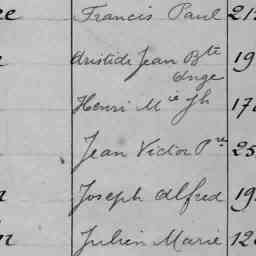 Francis Paul 21
Aristide Jean Bte 19
Ange
Henri Mie Jh 17
Jean Victor Pre 25
Joseph Alfred 19
Julien Marie 12